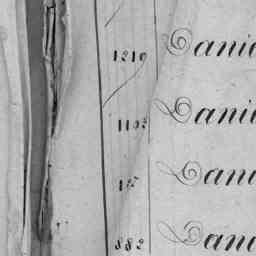 1210 Danie
1103 Danie
Dani
882 Dani